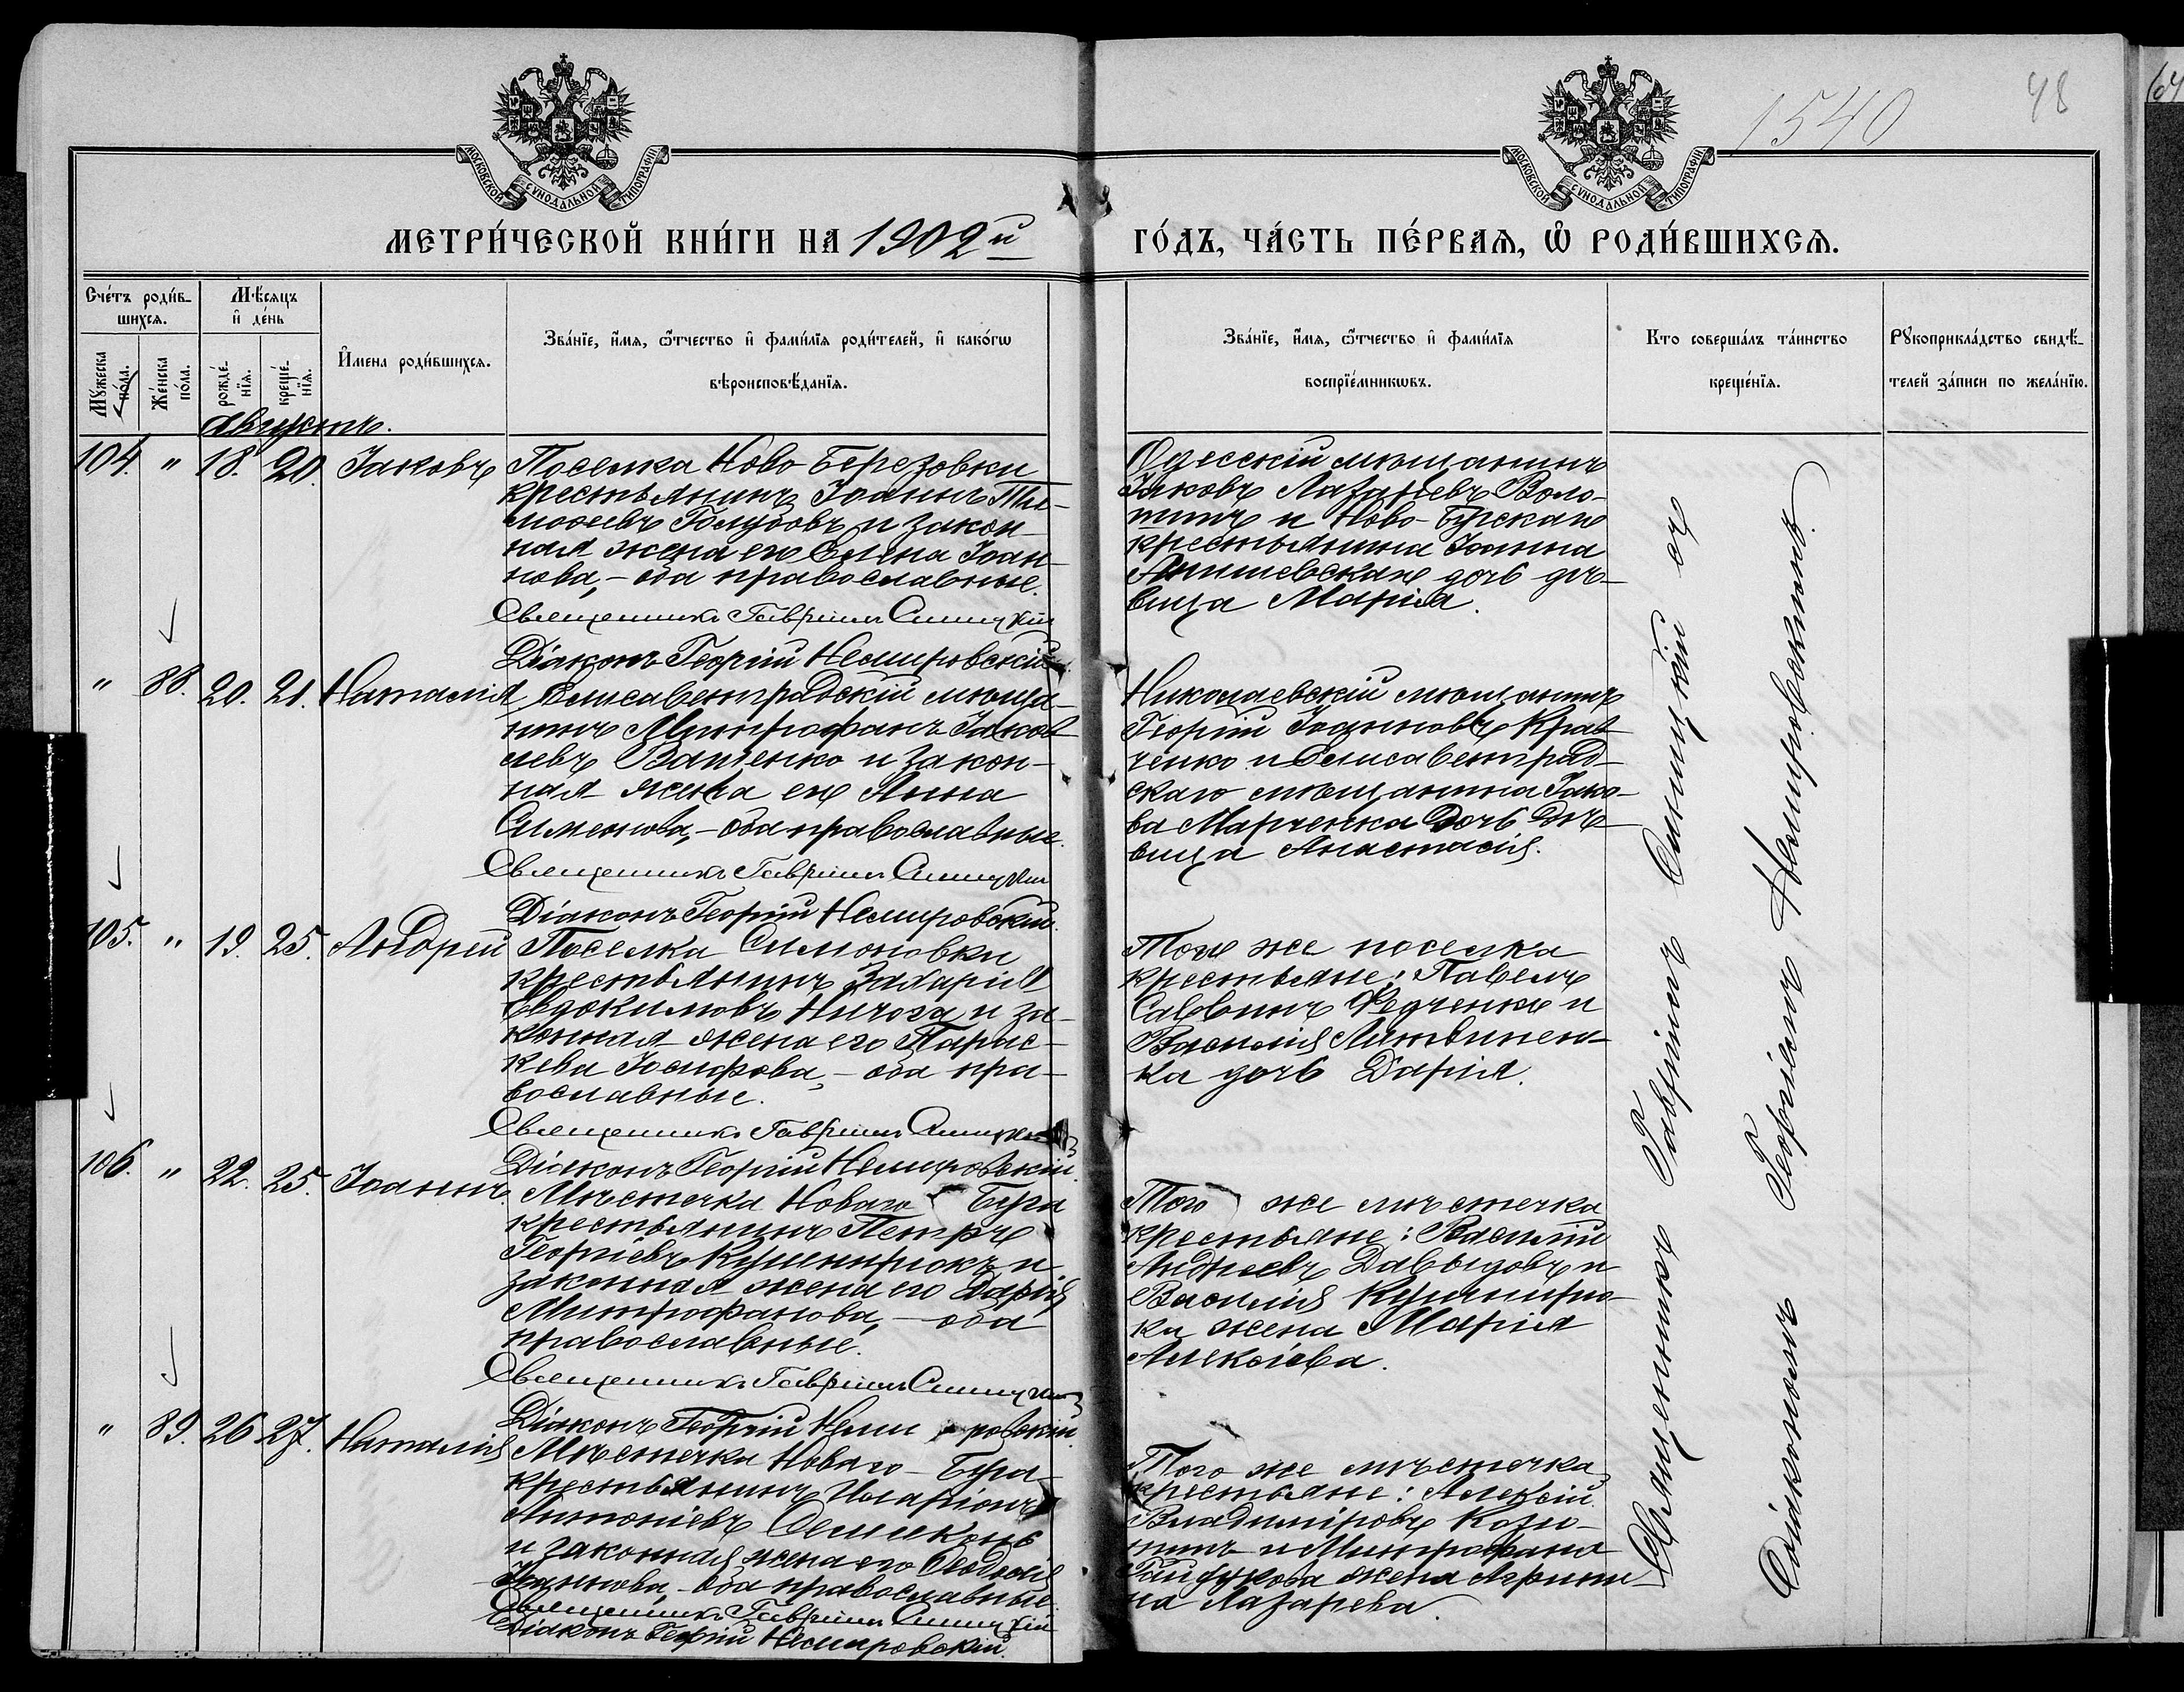 1540
48
МОСКОВСКОЙ СѴНОДАЛЬНОЙ ТИПОГРАФІИ
МОСКОВСКОЙ СѴНОДАЛЬНОЙ ТИПОГРАФІИ
МЕТРИ́ЧЕСКОЙ КНИ́ГИ НА 1902й
ГО́ДЪ, ЧА́СТЬ ПЕ́РВАѦ, Ѽ РОДИ́ВШИХСѦ.
Сче́тъ роди́в-
шихсѧ.
Мѣ́сѧцъ
и҆ де́нь
Мꙋ́жеска
по́ла.
Же́нска
по́ла.
рожде́-
нїѧ.
креще́-
нїѧ.
И҆мена роди́вшихсѧ.
Зва́нїе, и҆́мѧ, ѻ҆́тчество и҆ фами́лїѧ роди́телей, и҆ како́гѡ
вѣроисповѣ́данїѧ.
Зва́нїе, и҆́мѧ, ѻ҆́тчество и҆ фами́лїѧ
воспрїе́мникѡвъ.
Кто соверша́лъ та́инство
креще́нїѧ.
Рꙋкоприкла́дство свидѣ́-
телей за́писи по жела́нїю.
Августъ.
104. " 18. 20. Іаковъ
Поселка Ново-Березовки
крестьянинъ Іоаннъ Ти-
мофеевъ Голубовъ и закон-
ная жена его Елена Іоан-
нова, – оба православные.
Священникъ Гавріилъ Синицкій
Діаконъ Георгій Немировскій.
Одесскій мѣщанинъ
Іаковъ Лазаревъ Воло-
шинъ и Ново-Бугскаго
крестьянина Іоанна
дочь дѣ-
вица Марія.
" 88. 20. 21. Наталія
Елисаветградскій мѣща-
нинъ Митрофанъ Іаков-
левъ Ващенко и закон-
ная жена его Анна
Симеонова, – оба православные.
Священникъ Гавріилъ Синицкій
Діаконъ Георгій Немировскій.
Николаевскій мѣщанинъ
Георгій Іоанновъ Крав-
ченко и Елисаветград-
скаго мѣщанина Іако-
ва Марченка дочь дѣ-
вица Анастасія.
105. " 19. 25. Андрей
Поселка Симоновки
крестьянинъ Захарій
Евдокимовъ Ничога и за-
конная жена его Парас-
кева Іосифова, – оба пра-
вославные.
Священникъ Гавріилъ Синицкій
Діаконъ Георгій Немировскій.
Того же поселка
крестьяне: Павелъ
Саввинъ Федченко и
Василія Литвинен-
ка дочь Дарія.
106. " 22. 25. Іоаннъ
Мѣстечка Новаго Буга
крестьянинъ Петръ
Георгіевъ Кушнирюкъ и
законная жена его Дарія
Митрофанова, – оба
православные.
Священникъ Гавріилъ Синицкій
Діаконъ Георгій Немировскій.
Того же мѣстечка
крестьяне: Василій
Андреевъ Давыдовъ и
Василія Кушнирю-
ка жена Марія
Алексіева.
" 89. 26 27. Наталія
Мѣстечка Новаго-Буга
крестьянинъ Иларіонъ
Антоніевъ
и законная жена его Феодосія
Іоаннова, – оба православные.
Священникъ Гавріилъ Синицкій
Діаконъ Георгій Немировскій.
Того же мѣстечка
крестьяне: Алексій
Владиміровъ
и Митрофана
жена Агрипи-
на Лазарева.
Священникъ Гавріилъ Синицкій съ
Діакономъ Георгіемъ Немировскимъ.